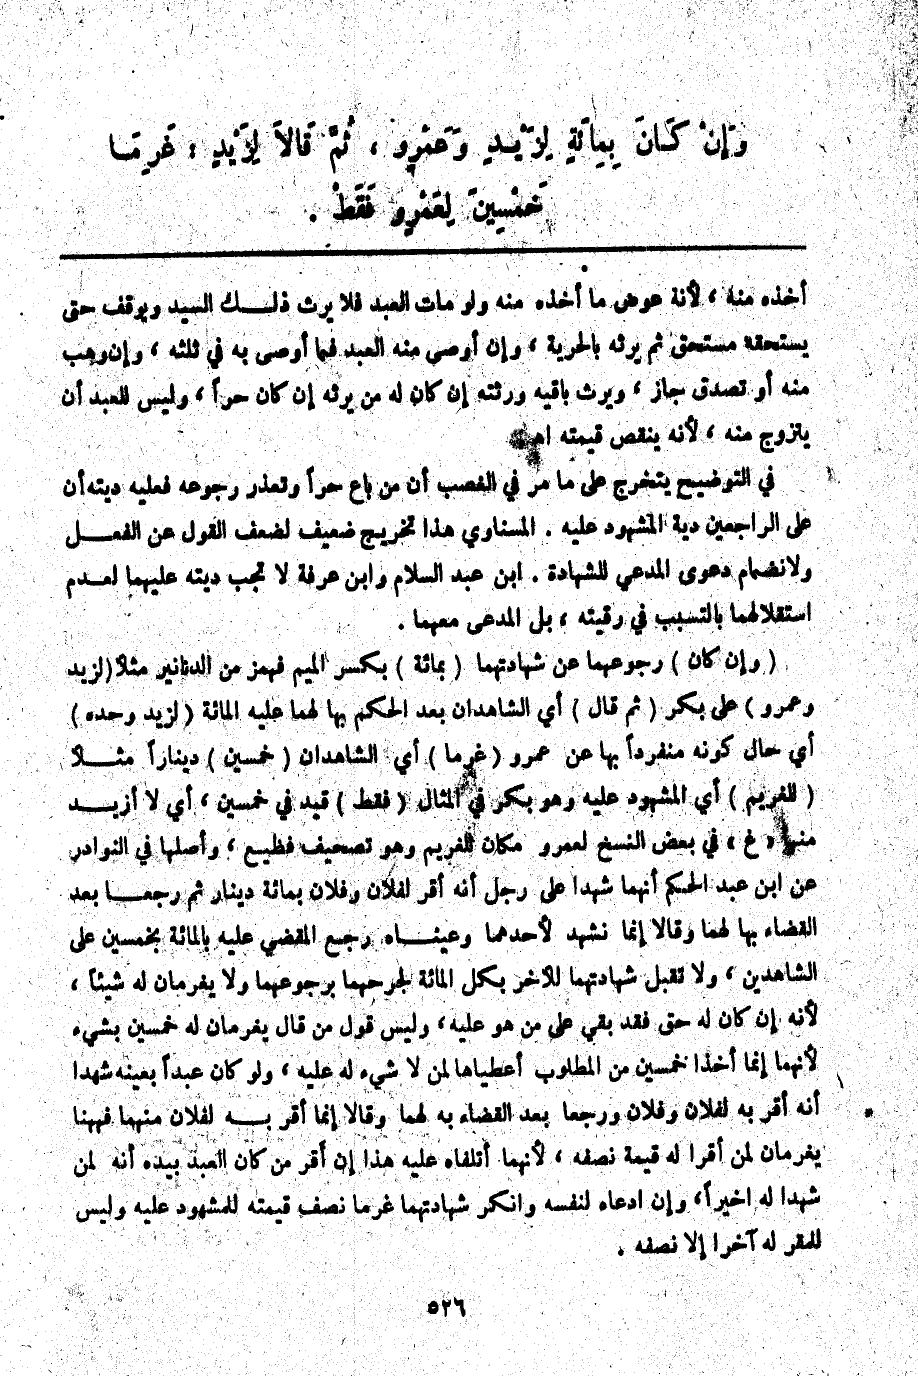 وَإِنْ كَانَ بِمِائَةٍ لِزَيْدٍ وَعَمْرٍو ، ثُمَّ قَالاَ لِزَيْدٍ : غَرِمَا
خَمْسِينَ لِعَمْرٍو فَقَطْ .
أخذه منه ، لأنه عوض ما أخذه منه ولو مات العبد فلا يرث ذلك السيد ويوقف حتى
يستحقه مستحق ثم يرثه بالحرية ، وإن أوصى منه العبد فما أوصى به في ثلثه ، وإن وهب
منه أو تصدق جاز ، ويرث باقيه ورثته إن كان له من يرثه إن كان حراً ، وليس للعبد أن
يتزوج منه ، لأنه ينقص قيمته اهـ
في التوضيح يتخرج على ما مر في الغصب أن من باع حراً وتعذر رجوعه فعليه ديته أن
على الراجعين دية المشهود عليه . المسناوي هذا تخريج ضعيف لضعف القول عن الفعل
ولانضمام دعوى المدعي للشهادة . ابن عبد السلام وابن عرفة لا تجب ديته عليهما لعدم
استقلالهما بالتسبب في رقيته ، بل المدعى معهما .
( وإن كان ) رجوعهما عن شهادتهما ( بمائة ) بكسر الميم فهمز من الدنانير مثلاً ( لزيد
وعمرو ) على بكر ( ثم قال ) أي الشاهدان بعد الحكم بها لهما عليه المائة ( لزيد وحده )
أي حال كونه منفرداً بها عن عمرو ( غرما ) أي الشاهدان ( خمسين ) ديناراً مثلاً
( للغريم ) أي المشهود عليه وهو بكر في المثال ( فقط ) قيد في خمسين ، أي لا أزيد
منها « غ » في بعض النسخ لعمرو مكان للغريم وهو تصحيف فظيع ، وأصلها في النوادر
عن ابن عبد الحكم أنهما شهدا على رجل أنه أقر لفلان وفلان بمائة دينار ثم رجعا بعد
القضاء بها لهما وقالا إنما نشهد لأحدهما وعيناه رجع المقضي عليه بالمائة بخمسين على
الشاهدين ، ولا تقبل شهادتهما للآخر بكل المائة لجرحهما برجوعهما ولا يغرمان له شيئاً ،
لأنه إن كان له حق فقد بقي على من هو عليه ، وليس قول من قال يغرمان له خمسين بشيء
لأنهما إنما أخذا خمسين من المطلوب أعطياها لمن لا شيء له عليه ، ولو كان عبداً بعينه شهدا
أنه أقر به لفلان وفلان ورجعا بعد القضاء به لهما وقالا إنما أقر به لفلان منهما فهنا
يغرمان لمن أقرا له قيمة نصفه ، لأنهما أتلفاه عليه هذا إن أقر من كان العبد بيده أنه لمن
شهدا له اخيراً ، وإن ادعاه لنفسه وانكر شهادتهما غرما نصف قيمته للمشهود عليه وليس
للمقر له آخرا إلا نصفه .
٥٢٦